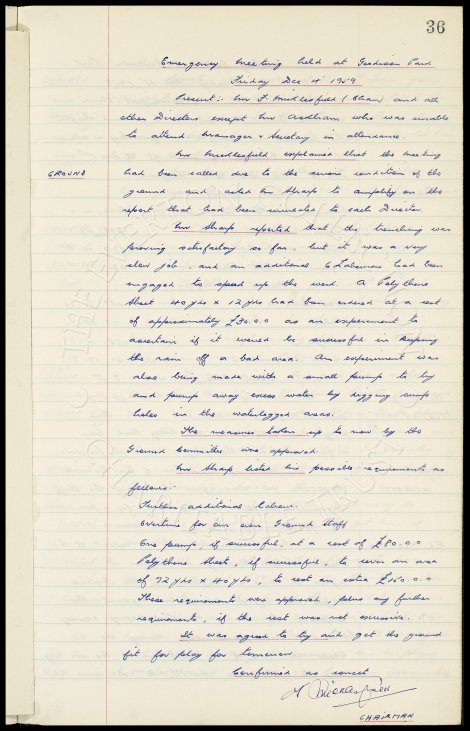 36
Emergency Meeting held at Goodison Park
Friday Dec 4 1959
Present: Mr F. Micklesfield (Chair) and all
other Directors except Mr Askham who was unable
to attend. Manager & Secretary in attendance.
Mr Micklesfield explained that the meeting
GROUND
had been called due to the severe condition of the
ground and asked Mr Sharp to amplify on the
report that had been circulated to each Director.
Mr Sharp reported that the trenching was
proving satisfactory so far, but it was a very
slow job, and an additional 6 Labourers had been
engaged to speed up the work. A Polythene
Sheet 40 yds x 12 yds had been ordered at a cost
of approximately £30.0.0 as an experiment to
ascertain if it would be successful in keeping
the rain off a bad area. An experiment was
also being made with a small pump to try
and pump away excess water by digging sump
holes in the waterlogged areas.
The measures taken up to now by the
Ground Committee were approved.
Mr Sharp listed his possible requirements as
follows:-
Further additional labour.
Overtime for our own Ground Staff
One pump, if successful, at a cost of £80.0.0
Polythene Sheet, if successful, to cover an area
of 72 yds x 40 yds, to cost an extra £150.0.0
These requirements were approved, plus any further
requirements, if the cost was not excessive.
It was agreed to try and get the ground
fit for play for tomorrow.
Confirmed as correct
CHAIRMAN